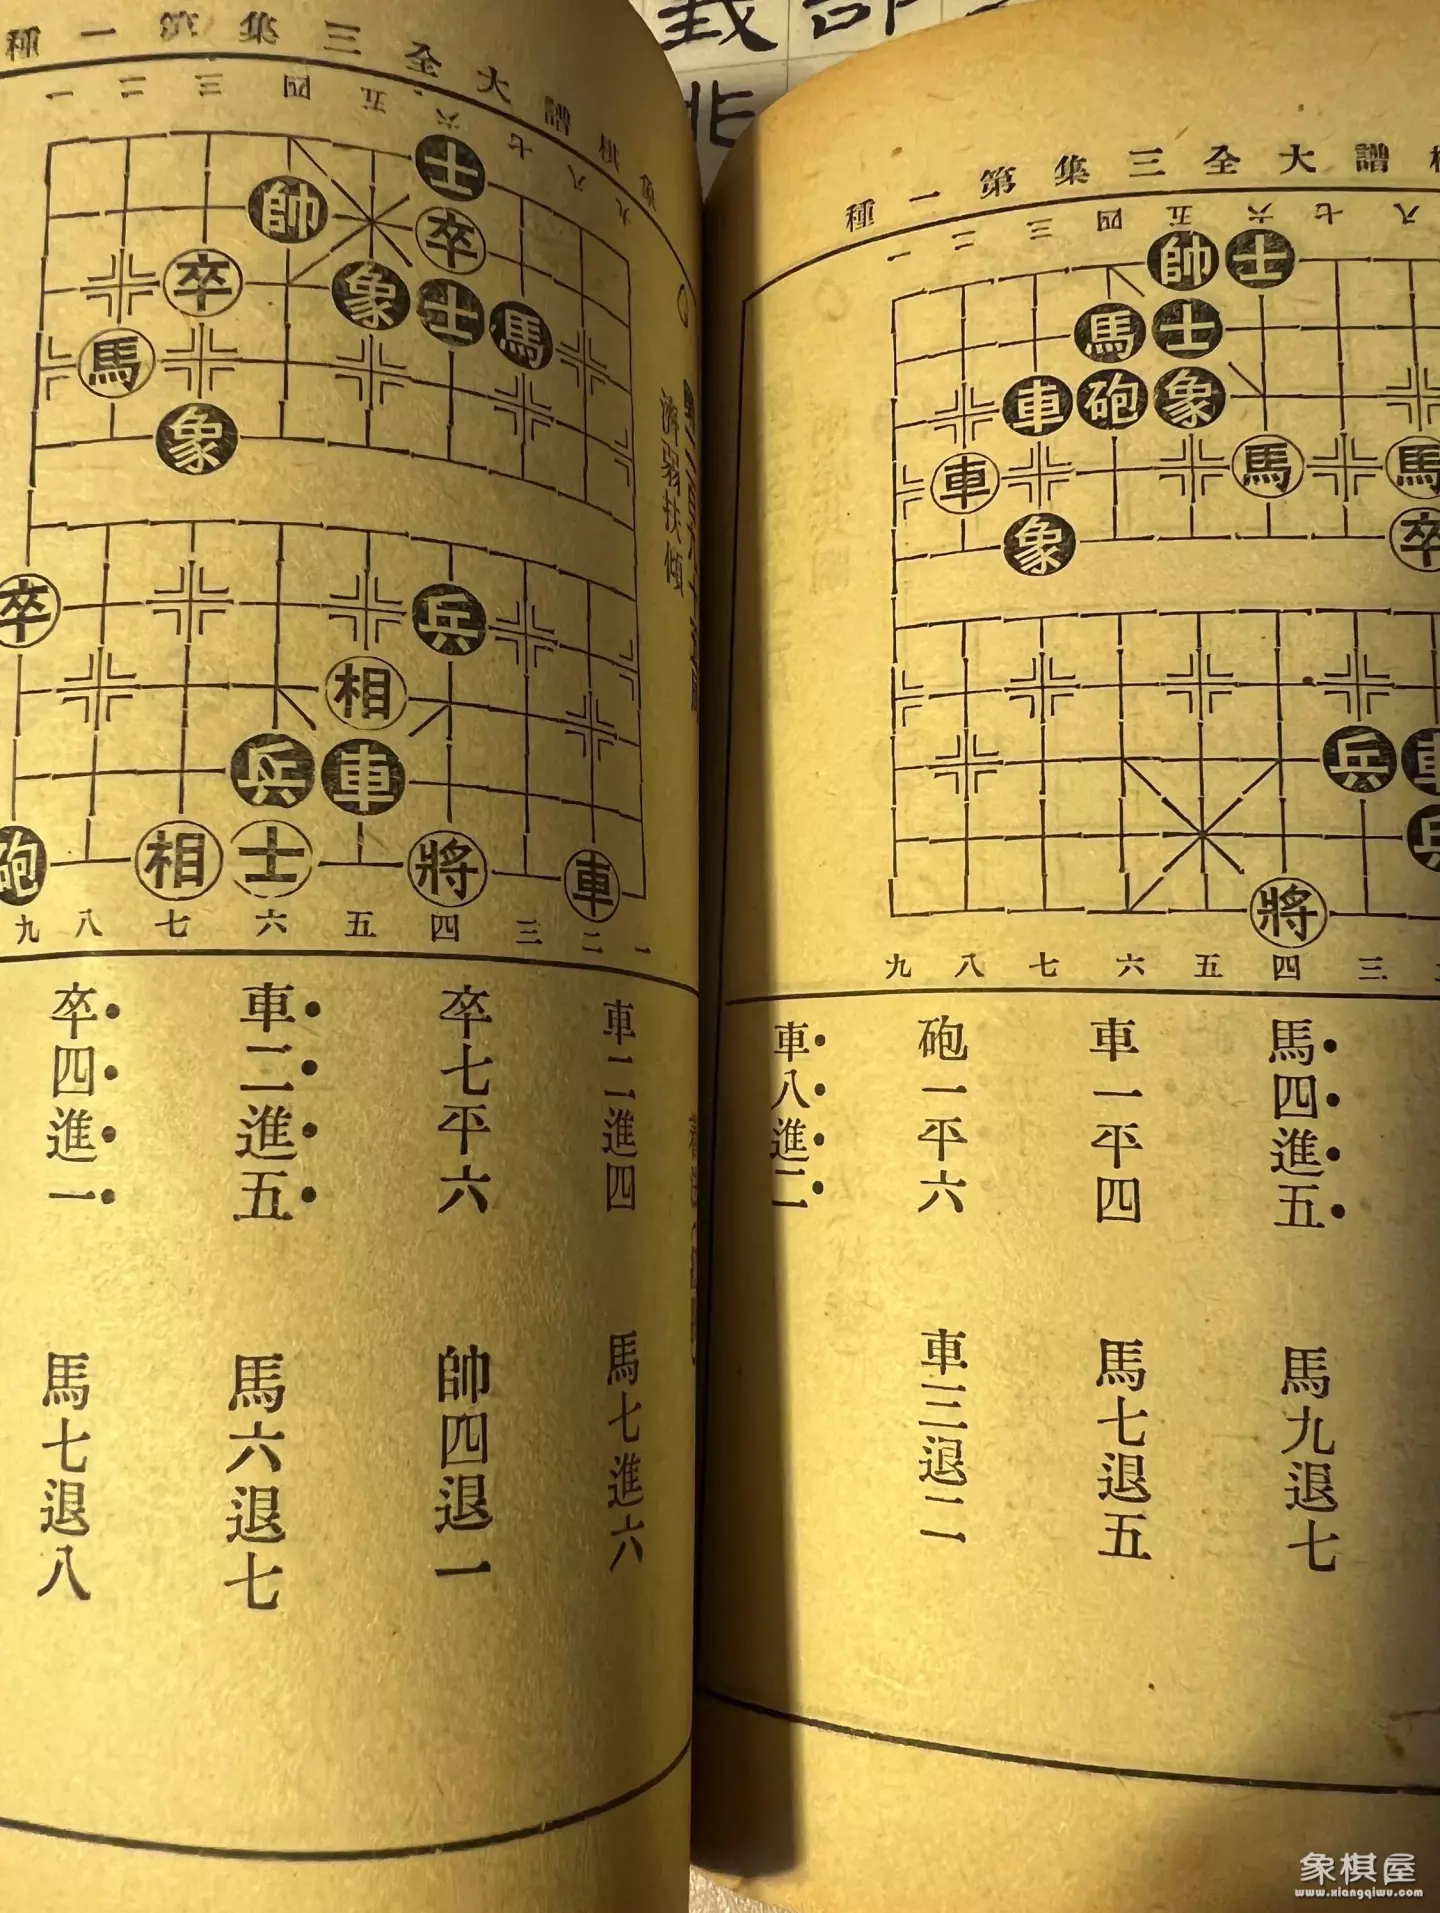 種一第集三全大譜棋
一二三四五六七八九
士
帥卒
卒象士馬
馬
象
卒兵
相
兵車
砲相士將車
九八七六五四三二一
濟弱扶傾
車二進四 馬七進六
卒七平六 帥四退一
車二進五 馬六退七
卒四進一 馬七退八
種一第集三全大譜
一二三四五六七八
帥士
馬士
車砲象
車馬馬
象卒
兵車
兵
將
九八七六五四三
馬四進五 馬九退七
車一平四 馬七退五
砲一平六 車三退二
車八進二
象棋屋
www.xiangqiwu.com